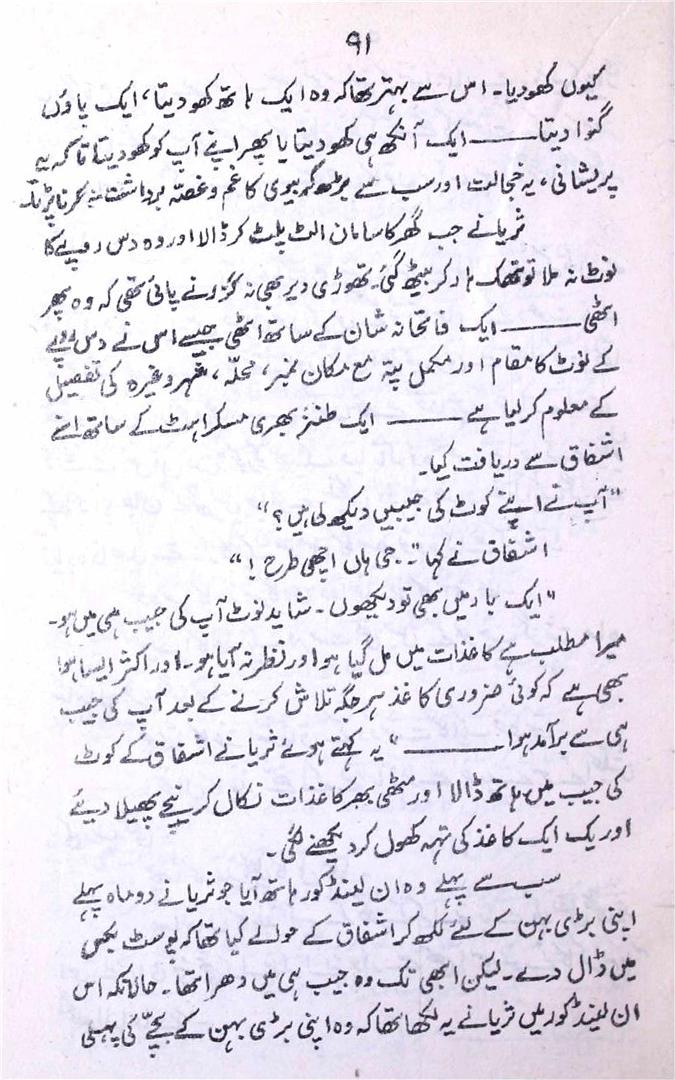 ۹۱
کیوں کھو دیا۔ اس سے بہتر تھا کہ وہ ایک ہاتھ کھو دیتا، ایک پاؤں
گنوا دیتا ــــــ ایک آنکھ ہی کھو دیتا یا پھر اپنے آپ کو کھو دیتا تا کہ یہ
پریشانی، یہ خجالت اور سب سے بڑھ کر بیوی کا غم و غصہ برداشت نہ کرنا پڑتا۔
ثریا نے جب گھر کا سامان الٹ پلٹ کر ڈالا اور وہ دس روپے کا
نوٹ نہ ملا تو تھک ہار کر بیٹھ گئی۔ تھوڑی دیر بھی نہ گزرنے پائی تھی کہ وہ پھر
اٹھی ــــــ ایک فاتحانہ شان کے ساتھ اٹھی جیسے اس نے دس روپے
کے نوٹ کا مقام اور مکمل پتہ مع مکان نمبر، محلہ، شہر وغیرہ کی تفصیل
کے معلوم کر لیا ہے ــــــ ایک طنز بھری مسکراہٹ کے ساتھ اسنے
اشفاق سے دریافت کیا۔
"آپ نے اپنے کوٹ کی جیبیں دیکھ لی ہیں؟"
اشفاق نے کہا "۔ جی ہاں اچھی طرح!"
"ایک بار میں بھی تو دیکھوں۔ شاید نوٹ آپ کی جیب ہی میں ہو۔
میرا مطلب ہے کاغذات میں مل گیا ہو اور نظر نہ آیا ہو۔ اور اکثر ایسا ہوا
بھی ہے کہ کوئی ضروری کاغذ ہر جگہ تلاش کرنے کے بعد آپ کی جیب
ہی سے برآمد ہوا ــــــ" یہ کہتے ہوئے ثریا نے اشفاق کے کوٹ
کی جیب میں ہاتھ ڈالا اور مٹھی بھر کاغذات نکال کر نیچے پھیلا دیئے
اور یک ایک کاغذ کی تہہ کھول کر دیکھنے لگی۔
سب سے پہلے وہ ان لینڈ کور ہاتھ آیا جو ثریا نے دو ماہ پہلے
اپنی بڑی بہن کے لئے لکھ کر اشفاق کے حوالے کیا تھا کہ پوسٹ بکس
میں ڈال دے۔ لیکن ابھی تک وہ جیب ہی میں دھرا تھا۔ حالانکہ اس
ان لینڈ کور میں ثریا نے یہ لکھا تھا کہ وہ اپنی بڑی بہن کے بچے کی پہلی